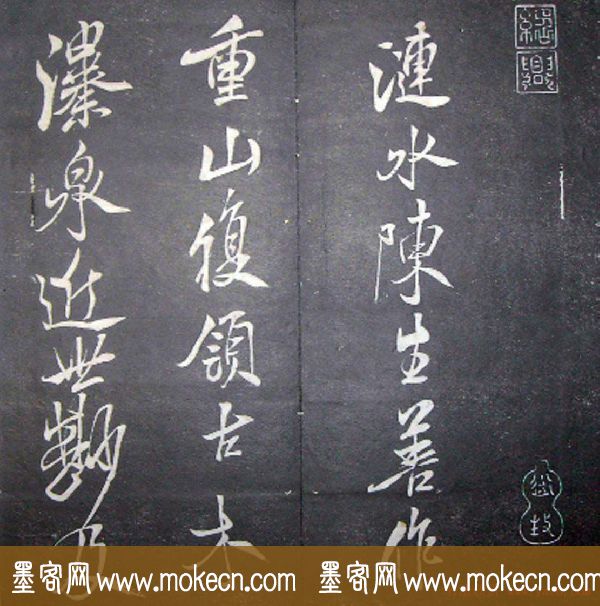 紹興
漣水陳生善作
重山復領古木
瀑泉近世勘乃
墨客网 www.mokecn.com 墨客网 www.mokecn.com